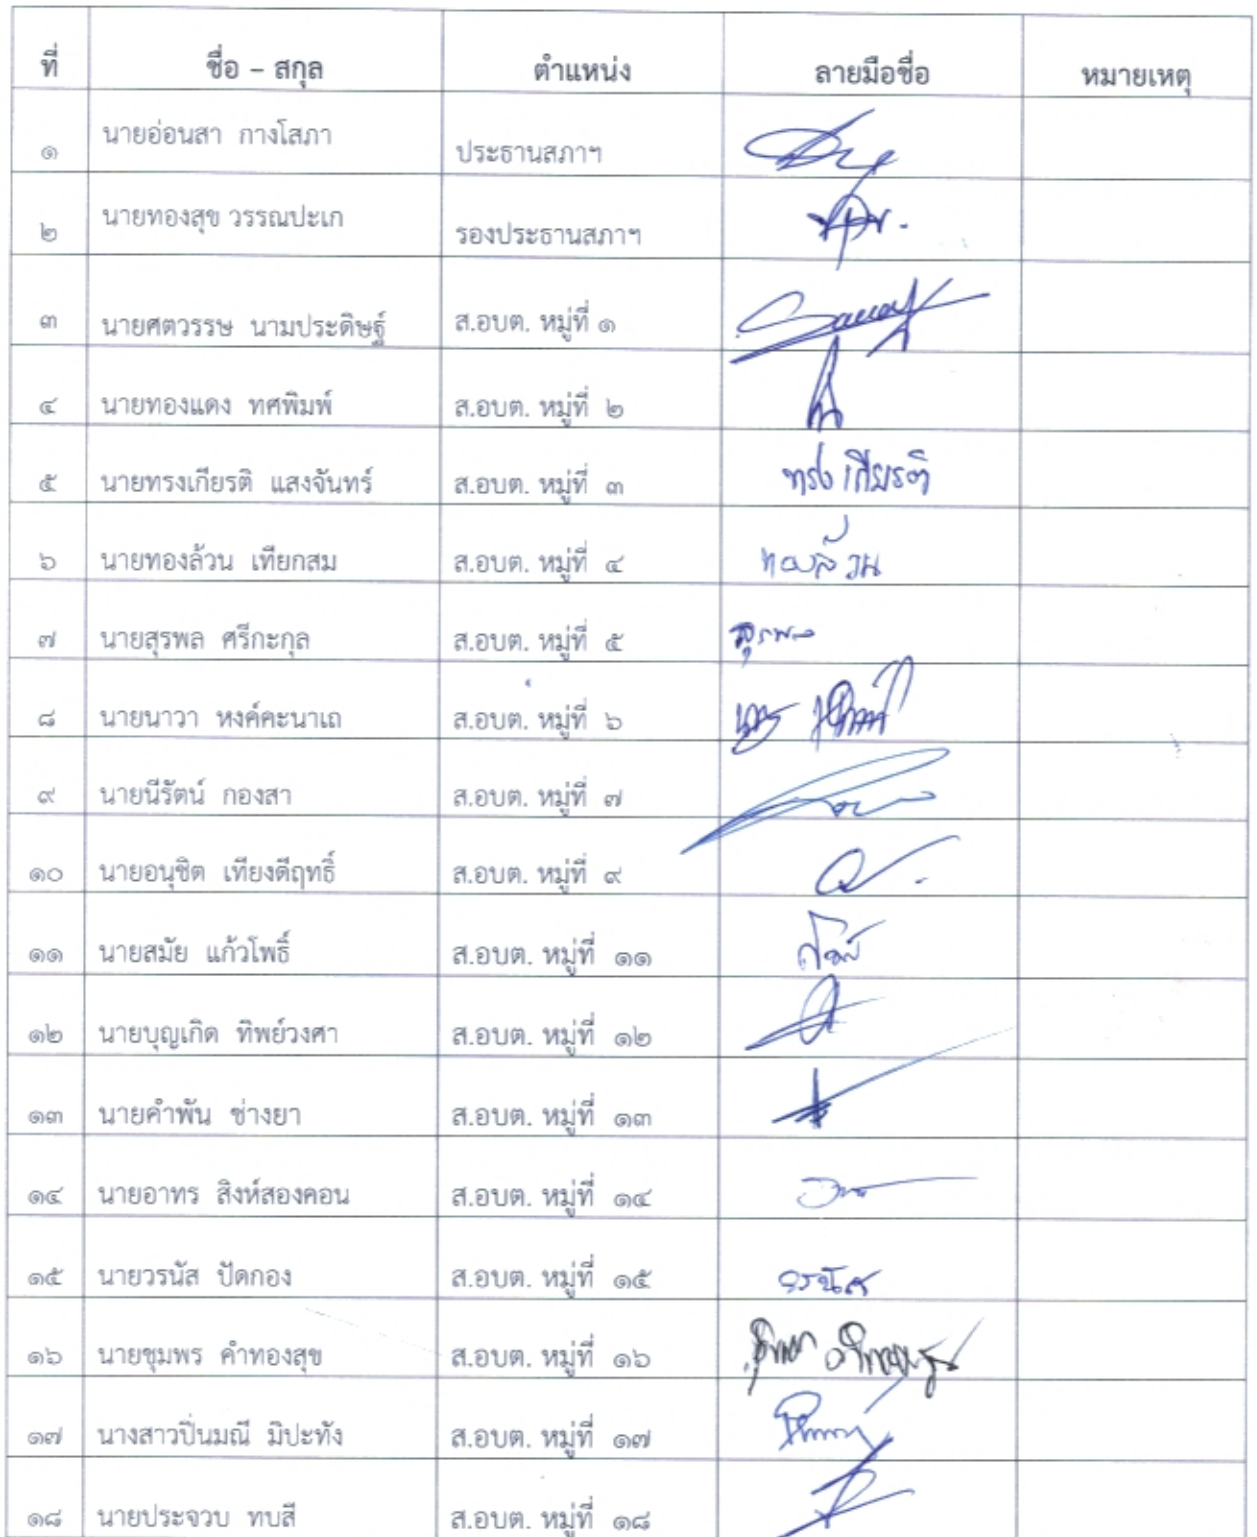 ที่ ชื่อ – สกุล ตำแหน่ง ลายมือชื่อ หมายเหตุ
๑ นายอ่อนสา กางโสภา ประธานสภาฯ
๒ นายทองสุข วรรณปะเก รองประธานสภาฯ
๓ นายศตวรรษ นามประดิษฐ์ ส.อบต. หมู่ที่ ๑
๔ นายทองแดง ทศพิมพ์ ส.อบต. หมู่ที่ ๒
๕ นายทรงเกียรติ แสงจันทร์ ส.อบต. หมู่ที่ ๓ ทรงเกียรติ
๖ นายทองล้วน เทียกสม ส.อบต. หมู่ที่ ๔ ทองล้วน
๗ นายสุรพล ศรีกะกุล ส.อบต. หมู่ที่ ๕ สุรพล
๘ นายนาวา หงค์คะนาเถ ส.อบต. หมู่ที่ ๖
๙ นายนีรัตน์ กองสา ส.อบต. หมู่ที่ ๗
๑๐ นายอนุชิต เทียงดีฤทธิ์ ส.อบต. หมู่ที่ ๙
๑๑ นายสมัย แก้วโพธิ์ ส.อบต. หมู่ที่ ๑๑
๑๒ นายบุญเกิด ทิพย์วงศา ส.อบต. หมู่ที่ ๑๒
๑๓ นายคำพัน ช่างยา ส.อบต. หมู่ที่ ๑๓
๑๔ นายอาทร สิงห์สองคอน ส.อบต. หมู่ที่ ๑๔
๑๕ นายวรนัส ปัดกอง ส.อบต. หมู่ที่ ๑๕ วรนัส
๑๖ นายชุมพร คำทองสุข ส.อบต. หมู่ที่ ๑๖
๑๗ นางสาวปิ่นมณี มิปะทัง ส.อบต. หมู่ที่ ๑๗
๑๘ นายประจวบ ทบสี ส.อบต. หมู่ที่ ๑๘